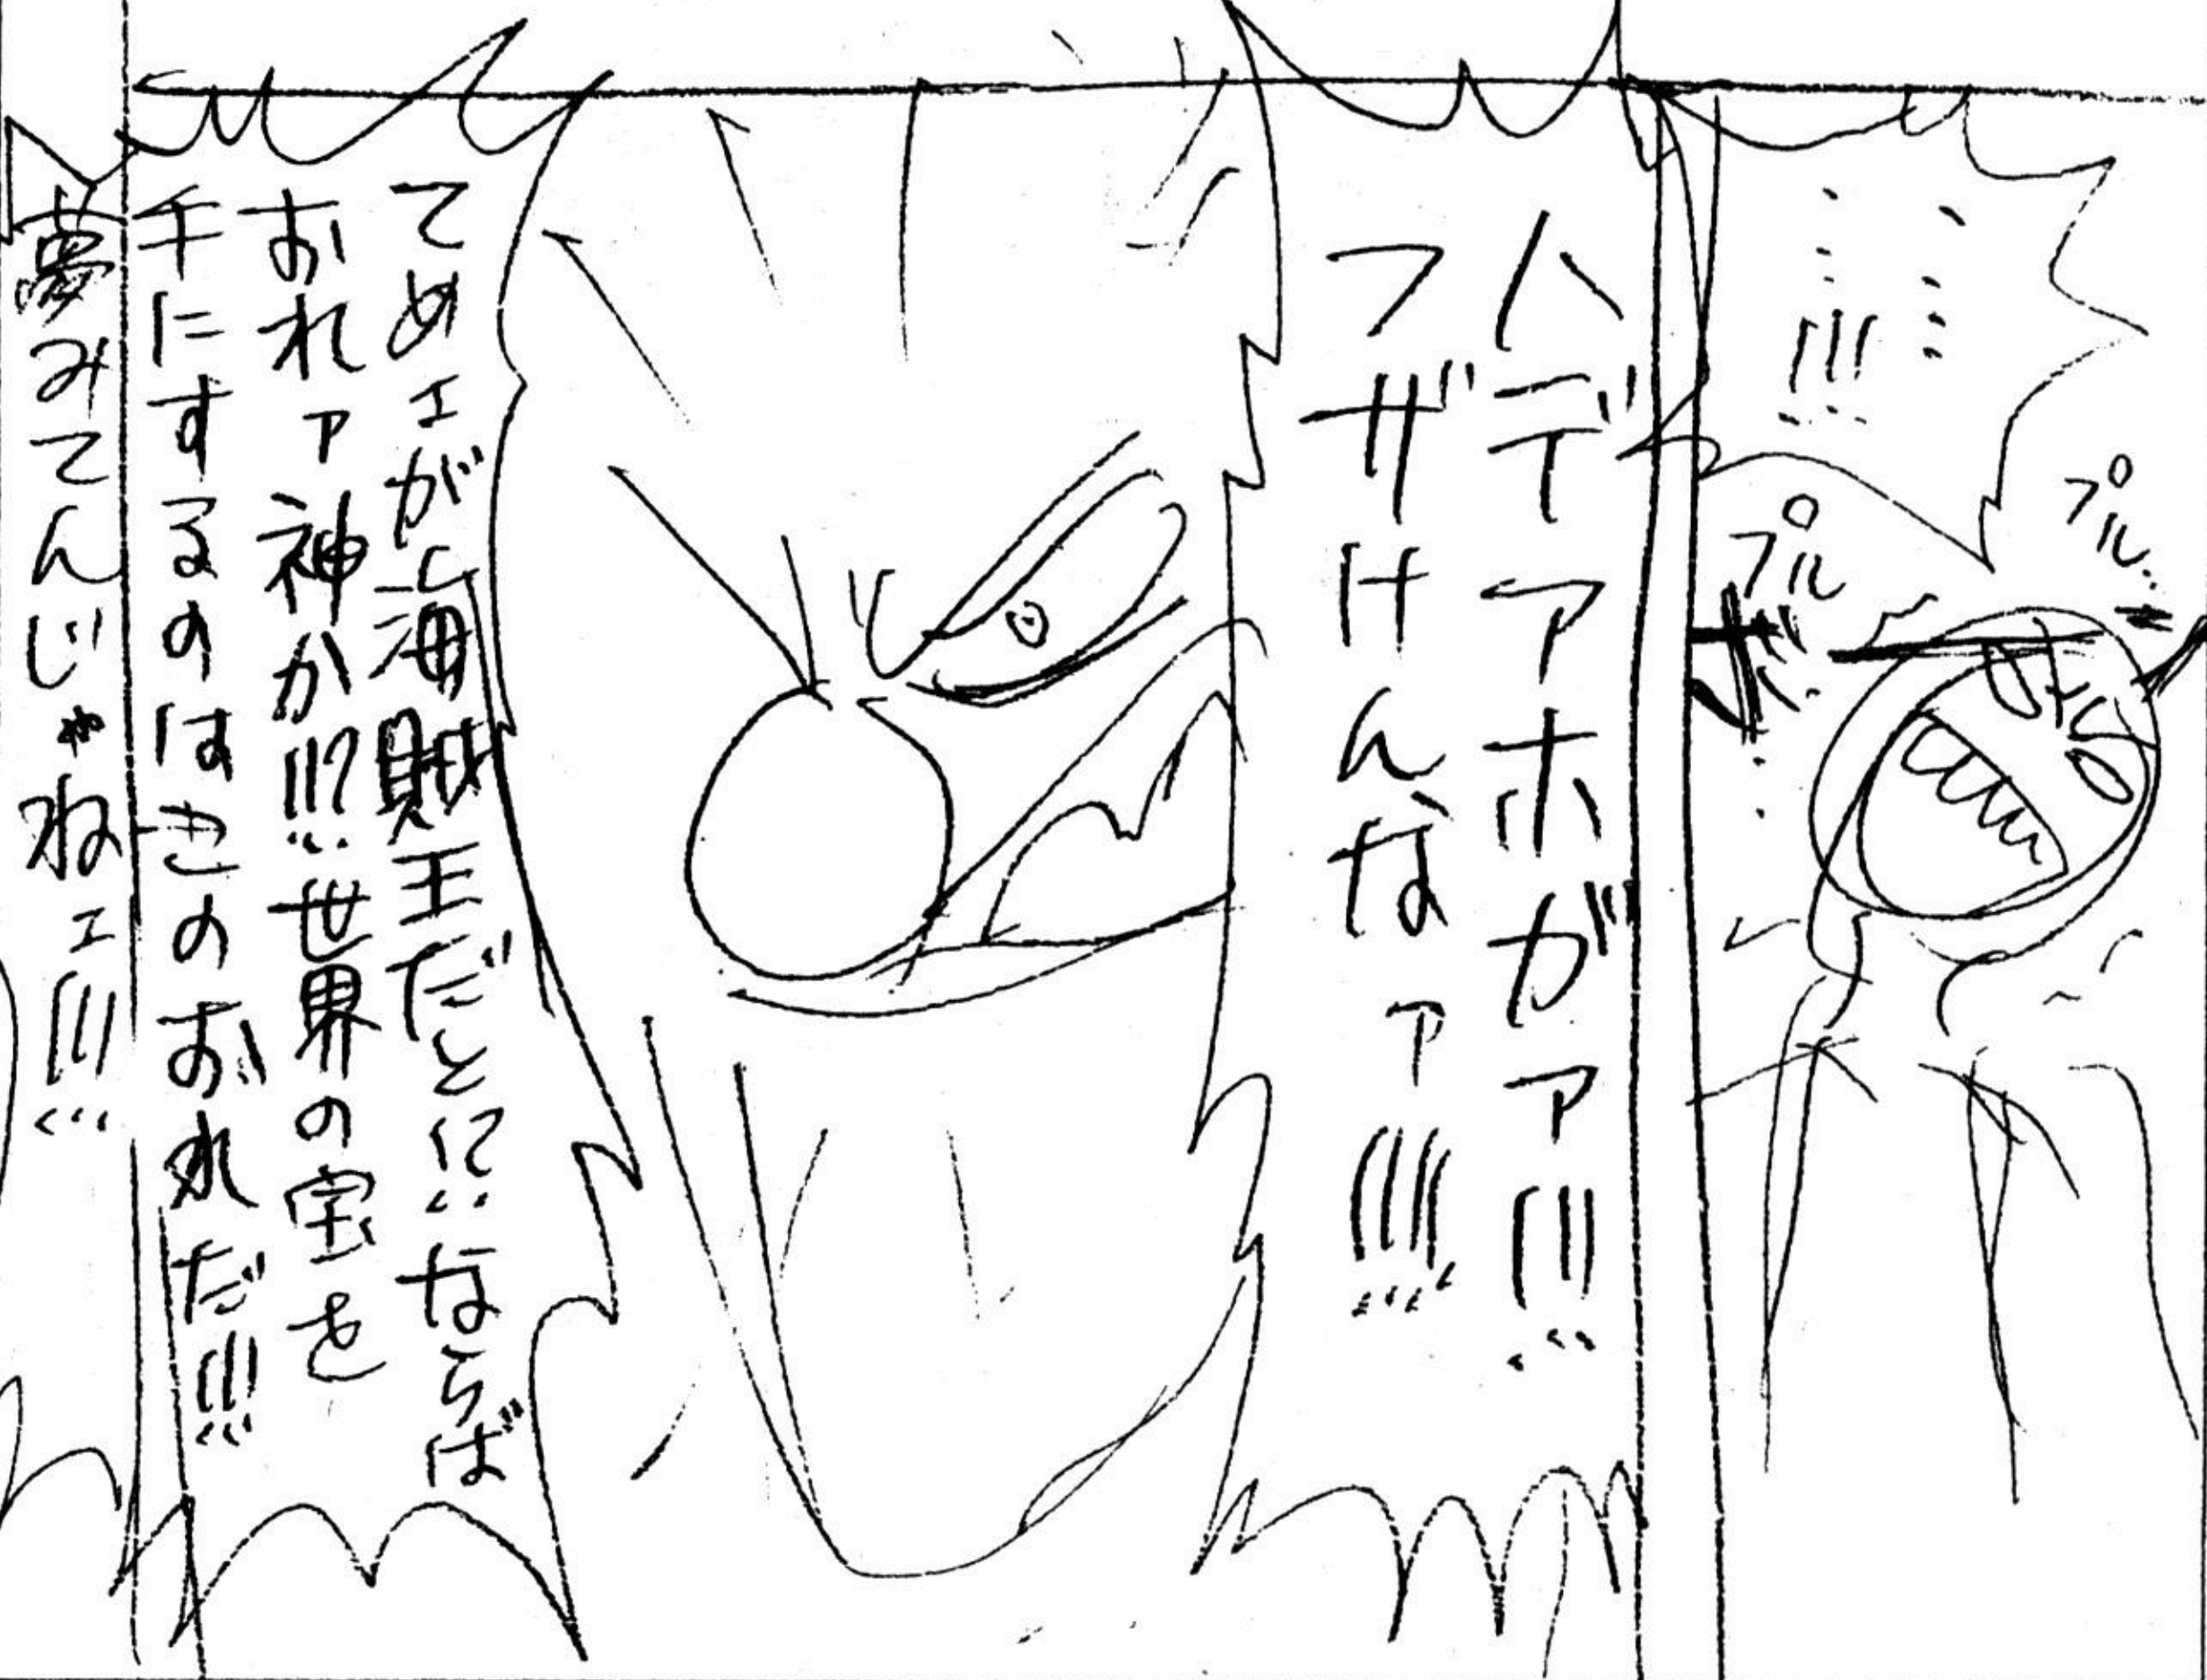 ……!!!
プル
プル…
ハデアホがァ!!!
フザけんなァ!!!!!
てめェが海賊王だと!?ならば
おれァ神か!!?世界の宝を
手にするのはこのおれだ!!!
夢みてんじゃねェ!!!